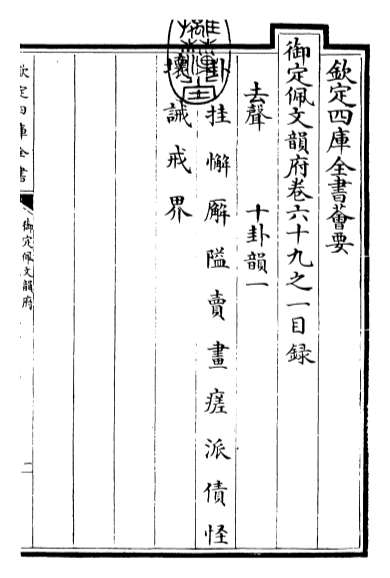 欽定四庫全書薈要
御定佩文韻府卷六十九之一目録
去聲 十卦韻一
卦挂懈廨隘賣畫瘥派債怪
壞誡戒界
欽定四庫全書
御定佩文韻府